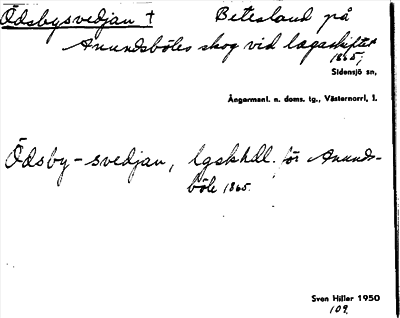 Ödsbysvedjan † Betesland på
Anundsböles skog vid lagaskiftet
1865;
Sidensjö sn,
Ångermanl. n. doms. tg., Västernorrl, l.
Ödsby-svedjan, lgskhdl. för Anunds-
böle 1865.
Sven Hiller 1950
109.